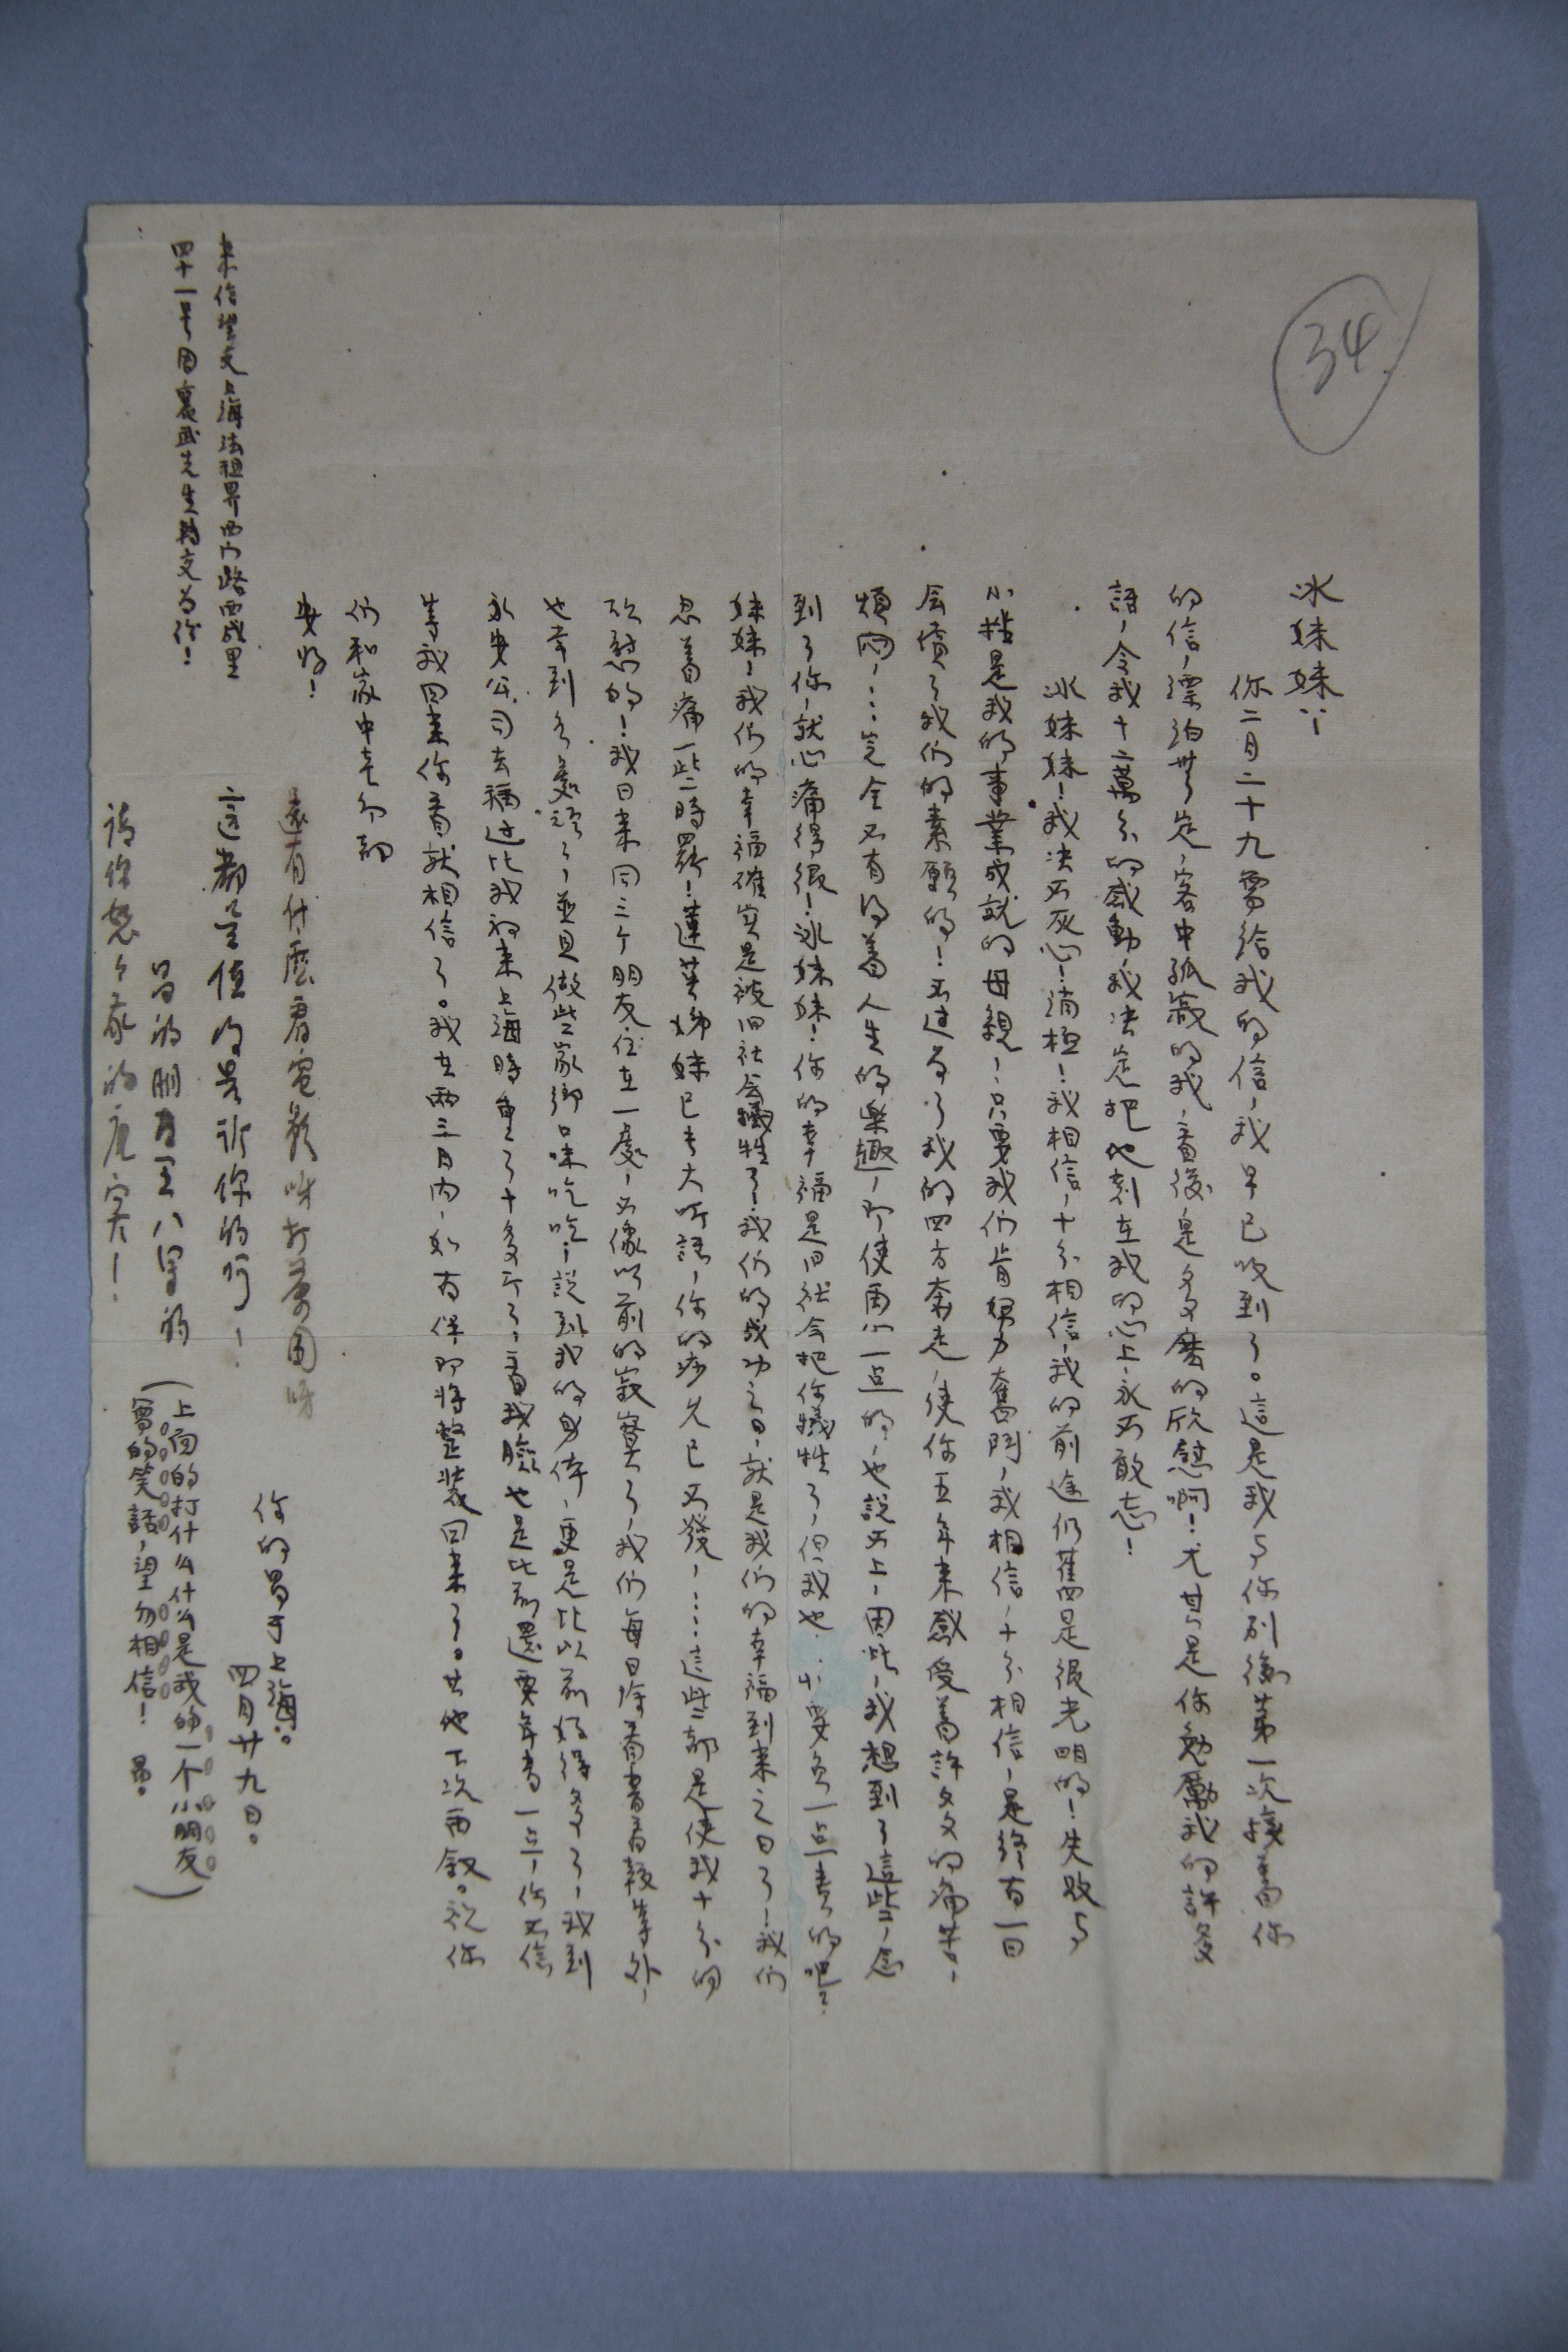 34
冰妹妹：
你二月二十九寄給我的信，我早已收到了。這是我与你別後第一次接着你
的信，漂泊無定，客中孤寂的我，看後是多麼的欣慰啊！尤其是你勉勵我的許多
語，令我十二萬分的感動，我决定把他刻在我的心上，永不敢忘！
冰妹妹！我决不灰心！消極！我相信，十分相信，我的前途仍舊是很光明的！失敗与
小挫是我的事業成就的母親，只要我们肯努力奮鬥，我相信，十分相信，是終有一日
会償了我们的素願的！不过为了我的四方奔走，使你五年来感受着許多的痛苦，
煩悶，……完全不有得着人生的樂趣，即使有一点的，也說不上，因此，我想到了這些，念
到了你，就心痛得很！冰妹妹！你的幸福是旧社会把你犧牲了，但我也要負一点責的吧？
妹妹！我们的幸福確实是被旧社会犧牲了！我们的成功之日，就是我们的幸福到来之日了！我们
忍着痛一些時罷！蓮英姊妹已专大听話，你的病久已不發，……這些都是使我十分的
欣慰的！我日来同三个朋友住在一處，不像以前的寂寞了，我们每日除看書看報等外，
也幸到各處頑了，並且做些家鄉口味吃吃，說到我的身体，更是比以前好得多了，我到
永安公司去稱过比我初来上海時重了十多斤了，看我臉也是比前還要年青一点，你不信
等我回来你看就相信了。我在兩三月内，如有伴即將整裝回来了。其他下次再叙。祝你
们和家中老幼都
安好！
你的昌于上海。
四月廿九日。
還有什麼看電影呀打茶围呀
這都是值得告訴你的呵！
昌的朋友王八男的
請你怒个家的应突！
（上面的打什么什么是我的一个小朋友
寫的笑話，望勿相信！ 昌。）
来信望交上海法租界西门路西成里
四十一号周裏武先生轉交为你！